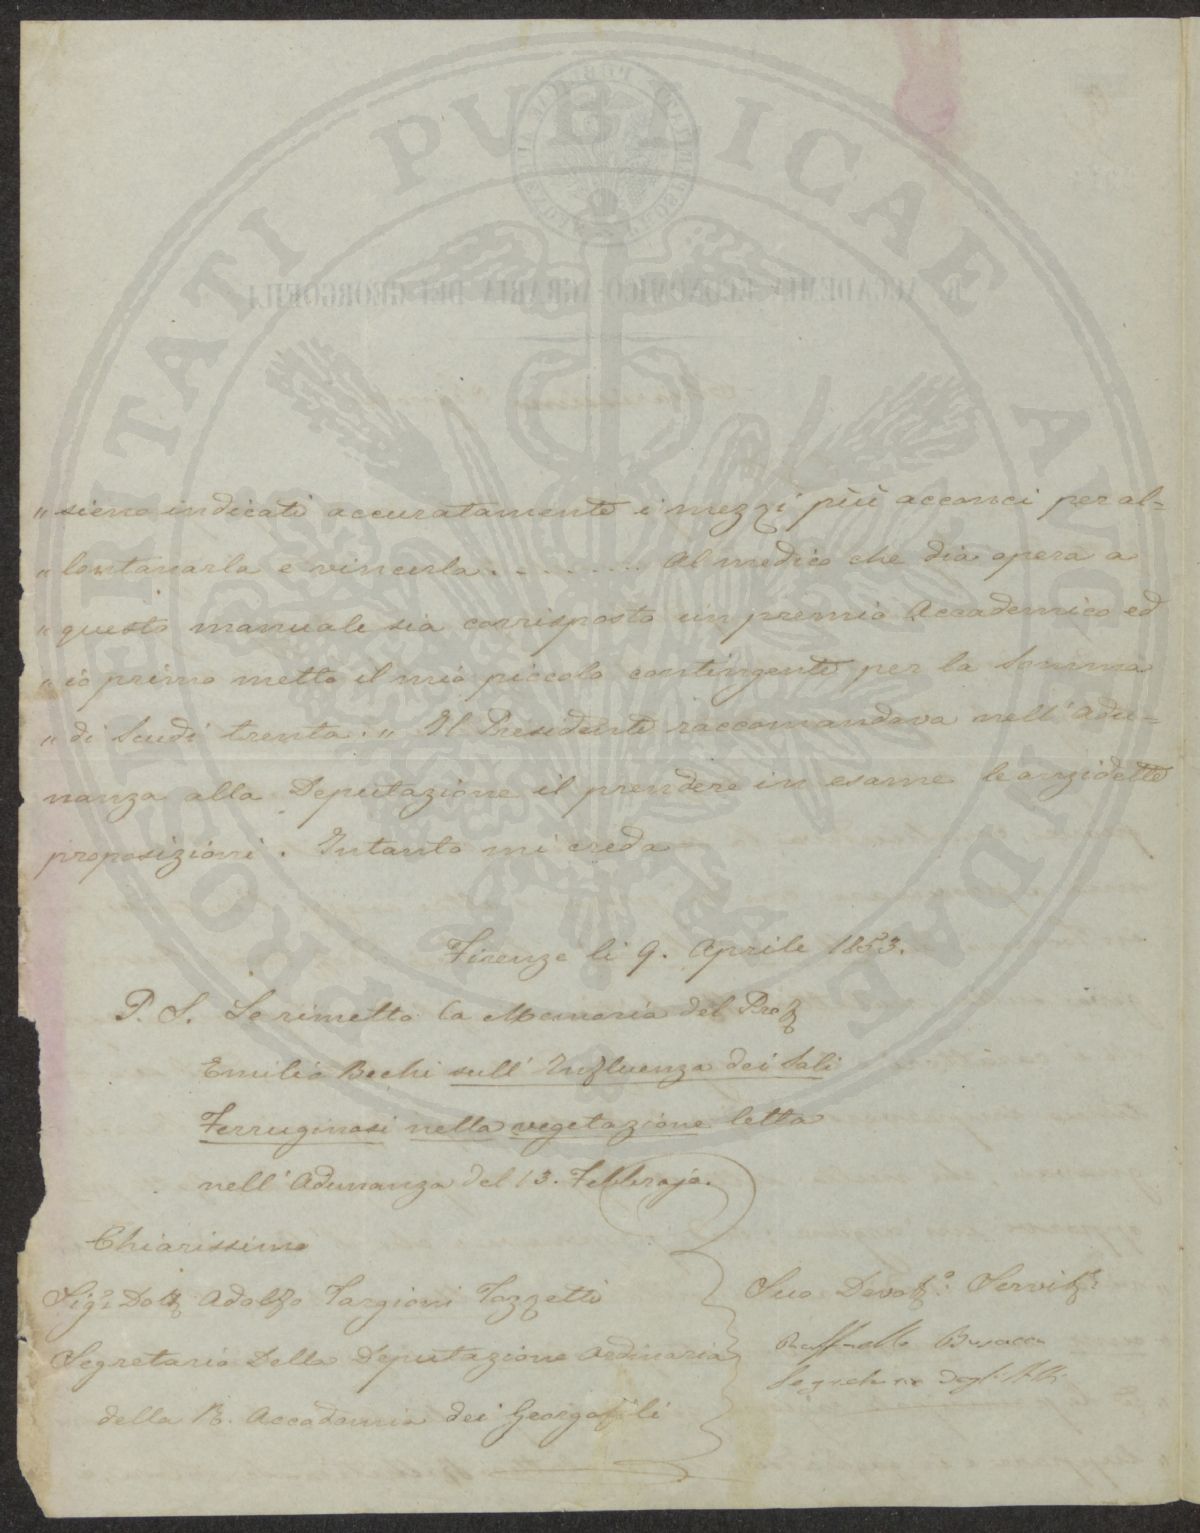 PROSPERITATI PUBLICAE AUGENDAE
R. ACCADEMIA ECONOMICO-AGRARIA DEI GEORGOFILI
„ sieno indicati accuratamente i mezzi più acconci per al=
„ lontanarla e vincerla . . . . . . . . Al medico che dia opera a
„ questo manuale sia corrisposto un premio Accademico ed
„ io primo metto il mio piccolo contingente per la Somma
„ di Scudi trenta. „ Il Presidente raccomandava nell'Adu=
nanza alla Deputazione il prendere in esame le anzidette
proposizioni. Intanto mi creda
Firenze li 9. Aprile 1853.
P. S. Le rimetto la Memoria del Prof
Emilio Bechi sull'Influenza dei Sali
Ferruginosi nella vegetazione letta
nell'Adunanza del 13. Febbrajo.
Chiarissimo
Sig.e Dott Adolfo Targioni Tozzetti
Segretario della Deputazione Ordinaria
della R. Accademia dei Georgofili
Suo Devot.o Servit.e
Raffaello Busacca
Segretario degli Atti